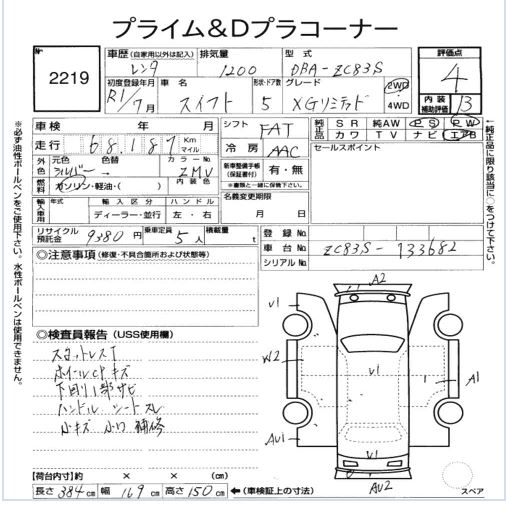 プライム＆Dプラコーナー
No. 2219
車歴 (自家用以外は記入) レンタ
排気量 1200
型式 DBA-ZC83S
評価点 4
初度登録年月 R1/7月
車名 スイフト
形状・ドア数 5
グレード XGリミテッド
2WD
4WD
内装補助評価 B
車検 年 月
走行 68,187 Km マイル
シフト FAT
冷房 AAC
純正品 SR 純AW PS PW
カワ TV ナビ エアB
セールスポイント
外色 元色 シルバー 色替
カラーNo. ZMV
燃料 ガソリン・軽油・( ) 内装色
新車整備手帳(保証書付) 有・無
※書類と一緒に保管下さい。
名義変更期限
月 日
輸入車用 年式 輸入区分 ハンドル
ディーラー・並行 左・右
リサイクル預託金 9380円
乗車定員 5人
積載量 t
登録No.
車台No. ZC83S-133682
シリアルNo.
◎注意事項 (修復・不具合箇所および状態等)
◎検査員報告 (USS使用欄)
スペアレス
ホイールCPキズ
下回り1部サビ
ハンドル シートスレ
小キズ 小凹 補修
A2
V1
W2
V1
1
A1
AV1
V1
AV2
スペア
【荷台内寸】約 × × (cm)
長さ 384cm 幅 169cm 高さ 150cm ←(車検証上の寸法)
※必ず油性ボールペンをご使用下さい。水性ボールペンは使用できません。
←純正品に限り該当に○をつけて下さい。